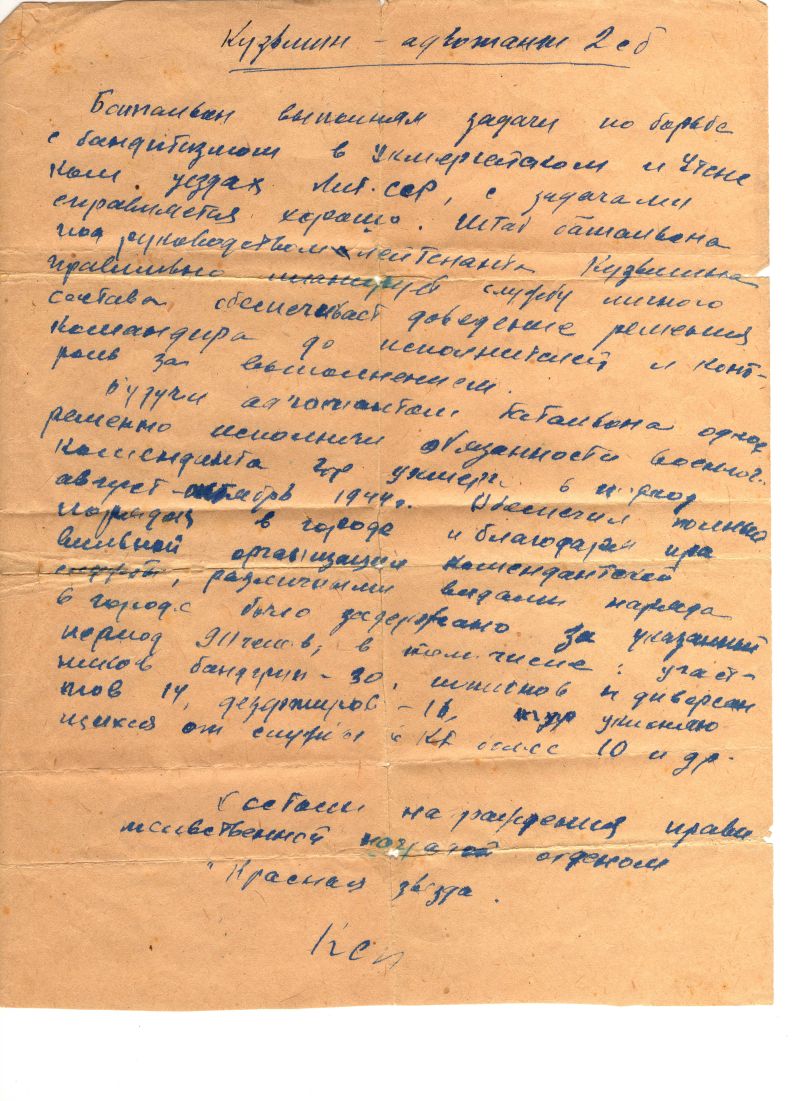 Кузьмин – адъютант 2 сб
Батальон выполняя задачи по борьбе
с бандитизмом в Укмергетском и Утенс
ком уездах Лит. ССР, с задачами
справляется хорошо. Штаб батальона
под руководством лейтенанта Кузьмина
правильно планирует службу личного
состава обеспечивает доведение решения
командира до исполнителей и конт-
роль за выполнением.
Будучи адъютантом батальона однов
ременно исполнял обязанности военного
коменданта гор Укмерге в период
август – октябрь 1944 г. Обеспечил полный
порядок в городе и благодаря пра
вильной организации комендантской
службы, различными видами наряда
в городе было задержано за указанный
период 911 чел., в том числе: участ-
ников бандгрупп – 30, шпионов и диверсан
тов 14, дезертиров – 16, уклоняю
щихся от службы в КА более 10 и др.
Достоин награждения прави
тельственной наградой орденом
"Красная звезда.